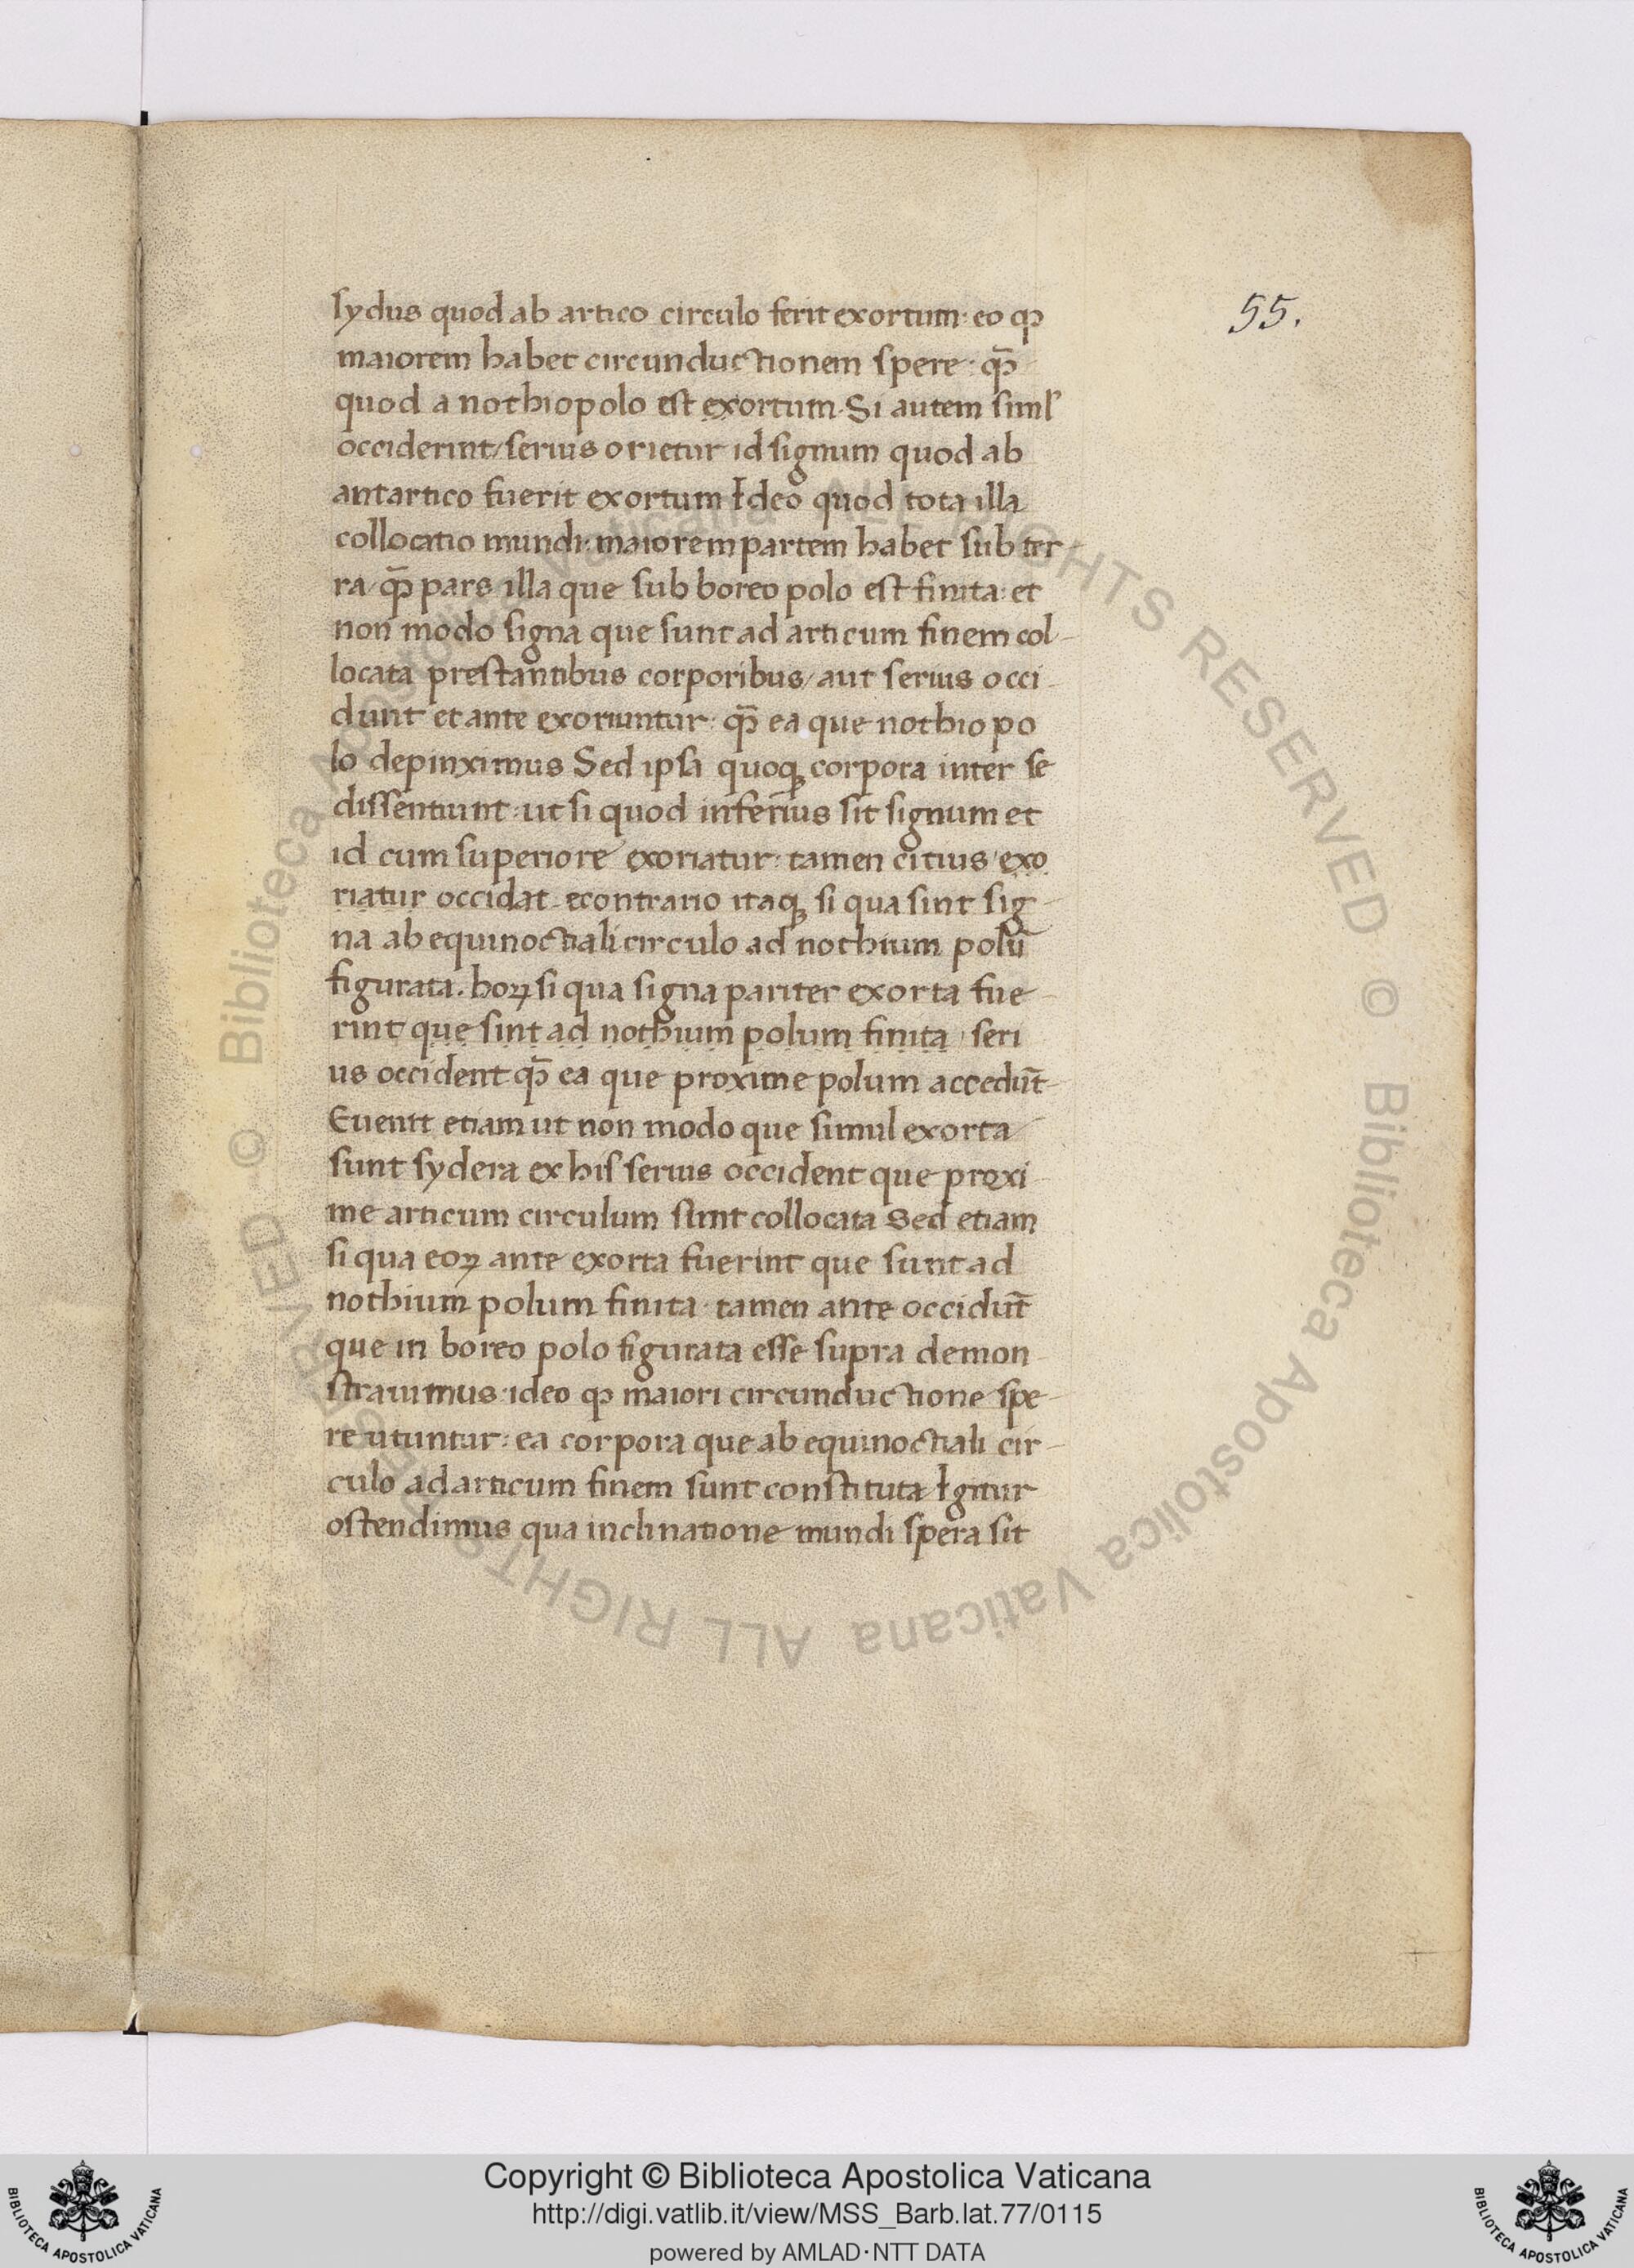 sydus quod ab artico circulo ferit exortum: eo ꝙ
55.
maiorem habet circunductionem spere: ꝙ̄
quod a nothiopolo est exortum. Si autem siml'
occiderint/ serius orietur id signum quod ab
antartico fuerit exortum Ideo quod tota illa
collocatio mundi: maiorem partem habet sub ter
ra/ ꝙ̄ pars illa que sub boreo polo est finita: et
non modo signa que sunt ad articum finem col-
locata prestantibus corporibus/ aut serius occi-
dunt et ante exoriuntur: ꝙ̄ ea que nothio po
lo depinximus Sed ipsa quoqꝫ corpora inter se
dissentiunt: ut si quod inferius sit signum et
id cum superiore exoriatur: tamen citius exo
riatur occidat. econtrario itaqꝫ si qua sint sig-
na ab equinoctiali circulo ad nothium polū
figurata. hoꝝ si qua signa pariter exorta fue-
rint que sint ad nothium polum finita, seri
us occident ꝙ̄ ea que proxime polum accedūt-
Euenit etiam ut non modo que simul exorta
sunt sydera ex his serius occident que proxi-
me articum circulum sunt collocata Sed etiam
si qua eoꝝ ante exorta fuerint que sunt ad
nothium polum finita: tamen ante occidūt
que in boreo polo figurata esse supra demon-
strauimus: ideo ꝙ maiori circunductione spe-
re utuntur: ea corpora que ab equinoctiali cir-
culo ad articum finem sunt constituta Igitur
ostendimus qua inclinatione mundi spera sit
© Biblioteca Apostolica Vaticana ALL RIGHTS RESERVED © Biblioteca Apostolica Vaticana ALL RIGHTS RESERVED
Copyright © Biblioteca Apostolica Vaticana
http://digi.vatlib.it/view/MSS_Barb.lat.77/0115
powered by AMLAD·NTT DATA
BIBLIOTECA APOSTOLICA VATICANA
BIBLIOTECA APOSTOLICA VATICANA